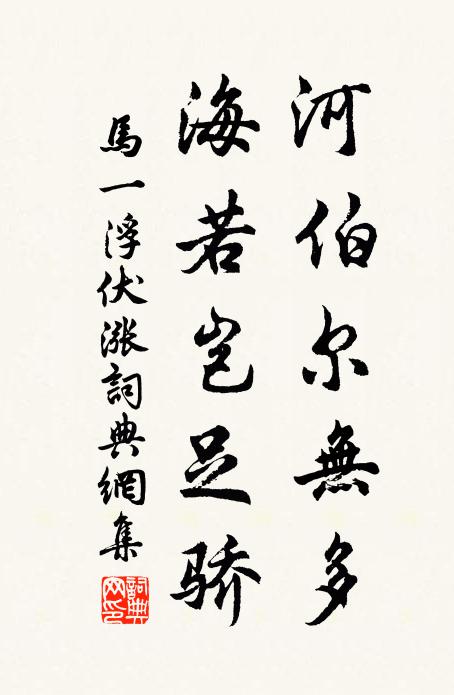 河伯尔無多
海若岂足骄
馬一浮伏漲詞典網集
詞典网印